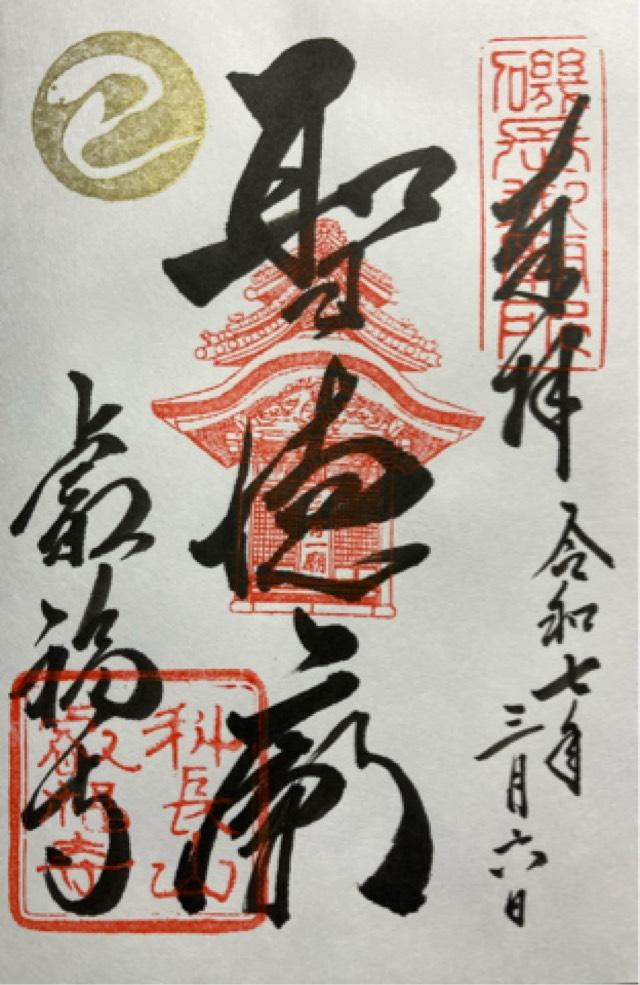 奉拝
令和七年
三月六日
聖徳廟
叡福寺
磯長御廟印
科長山
叡福寺